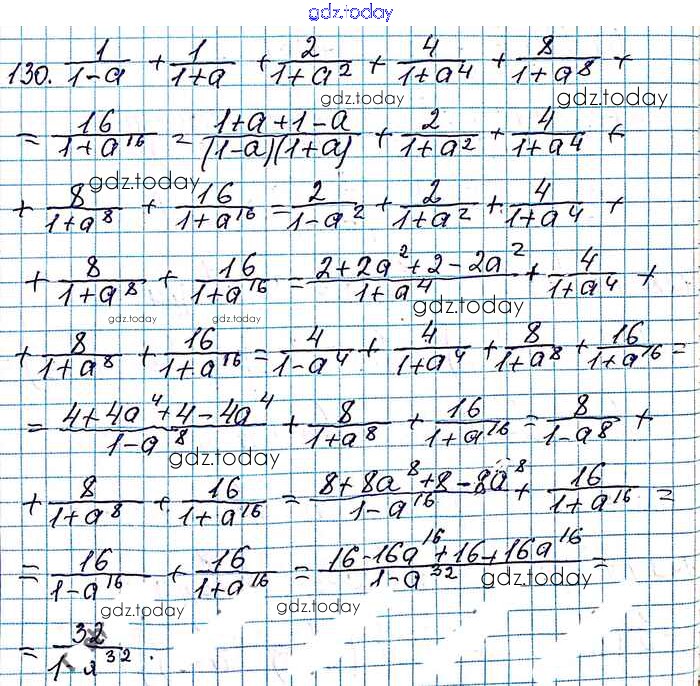 gdz.today
130. 1/(1-a) + 1/(1+a) + 2/(1+a²) + 4/(1+a⁴) + 8/(1+a⁸) +
gdz.today gdz.today
= 16/(1+a¹⁶) = (1+a+1-a)/((1-a)(1+a)) + 2/(1+a²) + 4/(1+a⁴) +
gdz.today
+ 8/(1+a⁸) + 16/(1+a¹⁶) = 2/(1-a²) + 2/(1+a²) + 4/(1+a⁴) +
+ 8/(1+a⁸) + 16/(1+a¹⁶) = (2+2a²+2-2a²)/(1+a⁴) + 4/(1+a⁴) +
gdz.today gdz.today gdz.today
+ 8/(1+a⁸) + 16/(1+a¹⁶) = 4/(1-a⁴) + 4/(1+a⁴) + 8/(1+a⁸) + 16/(1+a¹⁶) =
= (4+4a⁴+4-4a⁴)/(1-a⁸) + 8/(1+a⁸) + 16/(1+a¹⁶) = 8/(1-a⁸) +
gdz.today
+ 8/(1+a⁸) + 16/(1+a¹⁶) = (8+8a⁸+8-8a⁸)/(1-a¹⁶) + 16/(1+a¹⁶) =
= 16/(1-a¹⁶) + 16/(1+a¹⁶) = (16-16a¹⁶+16+16a¹⁶)/(1-a³²) =
gdz.today gdz.today gdz.today
= 32/(1-a³²).